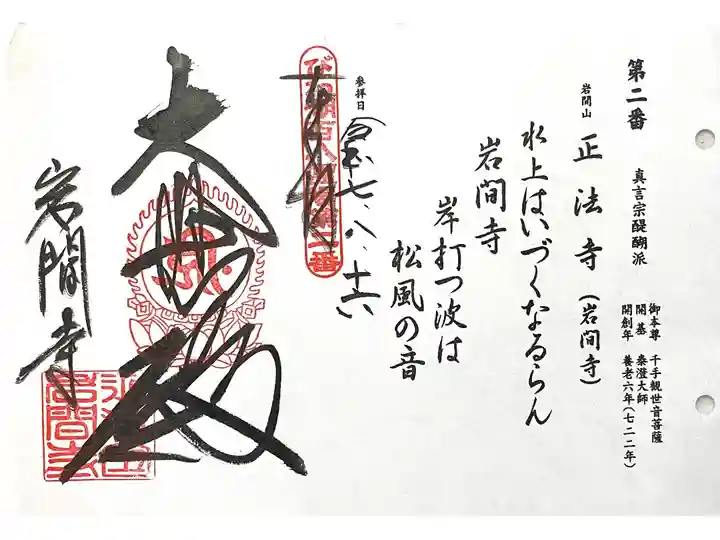 第二番　真言宗醍醐派
岩間山　正法寺（岩間寺）
御本尊　千手観世音菩薩
開基　泰澄大師
開創年　養老六年（七二二年）
水上はいづくなるらん
岩間寺
岸打つ波は
松風の音
参拝日　令和七、八、十六
奉拝
大悲殿
岩間寺